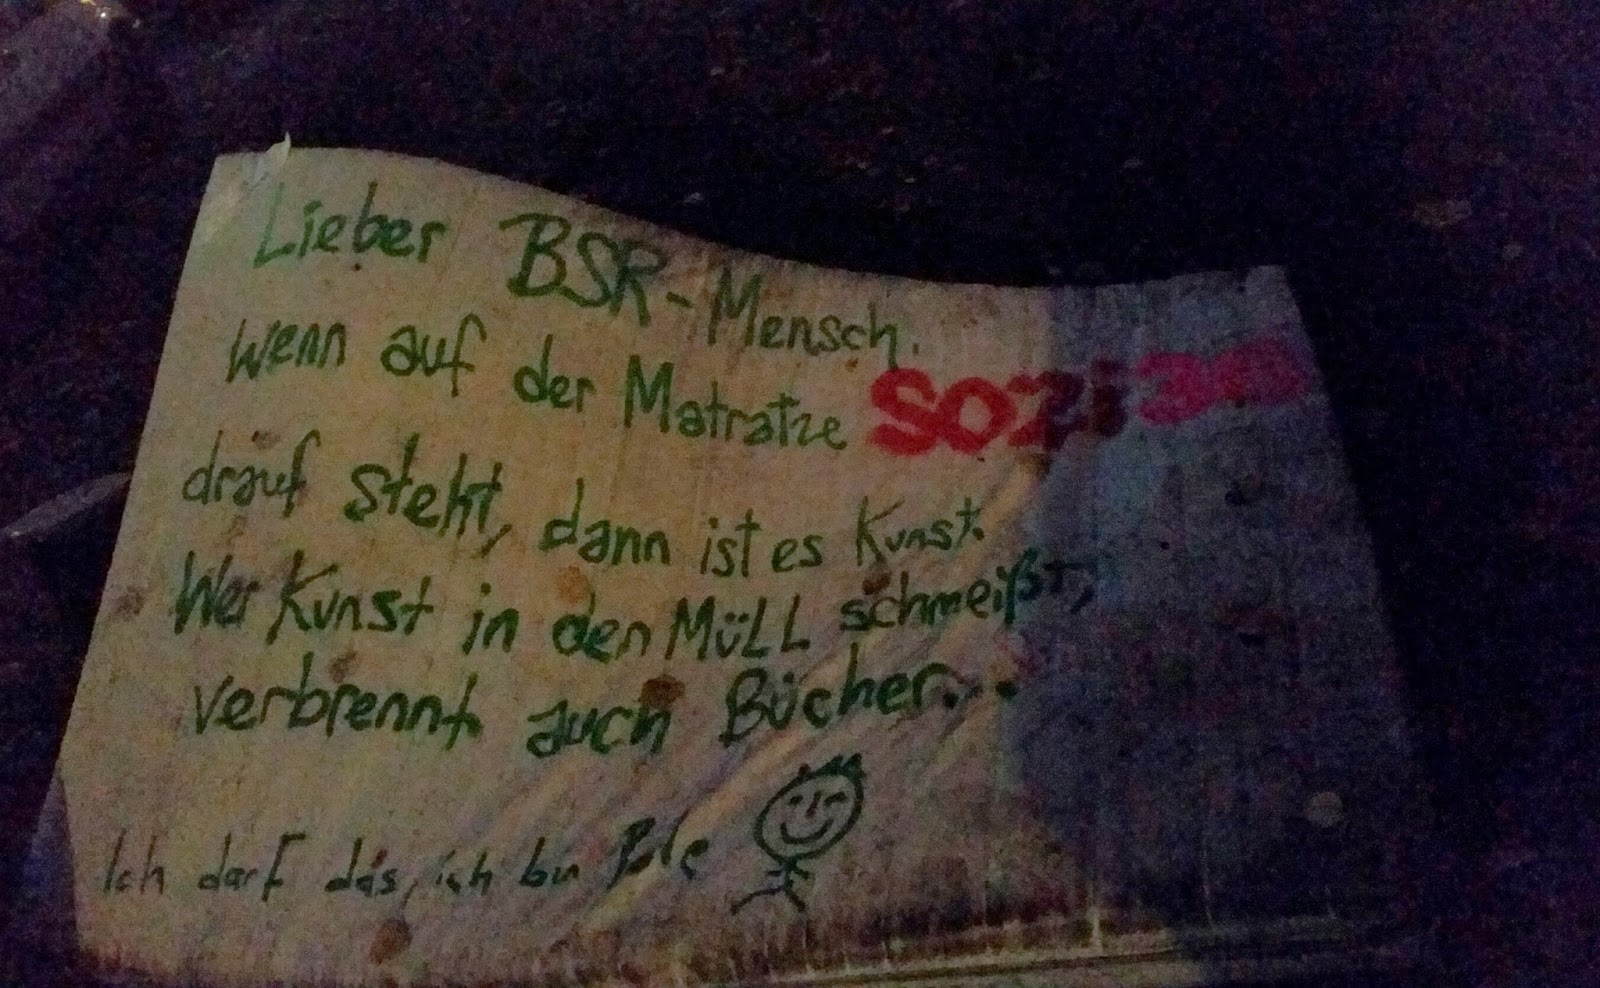 Lieber BSR-Mensch.
wenn auf der Matratze SOZI36
drauf steht, dann ist es Kunst.
Wer Kunst in den MüLL schmeißt,
verbrennt auch Bücher...
Ich darf das, ich bin